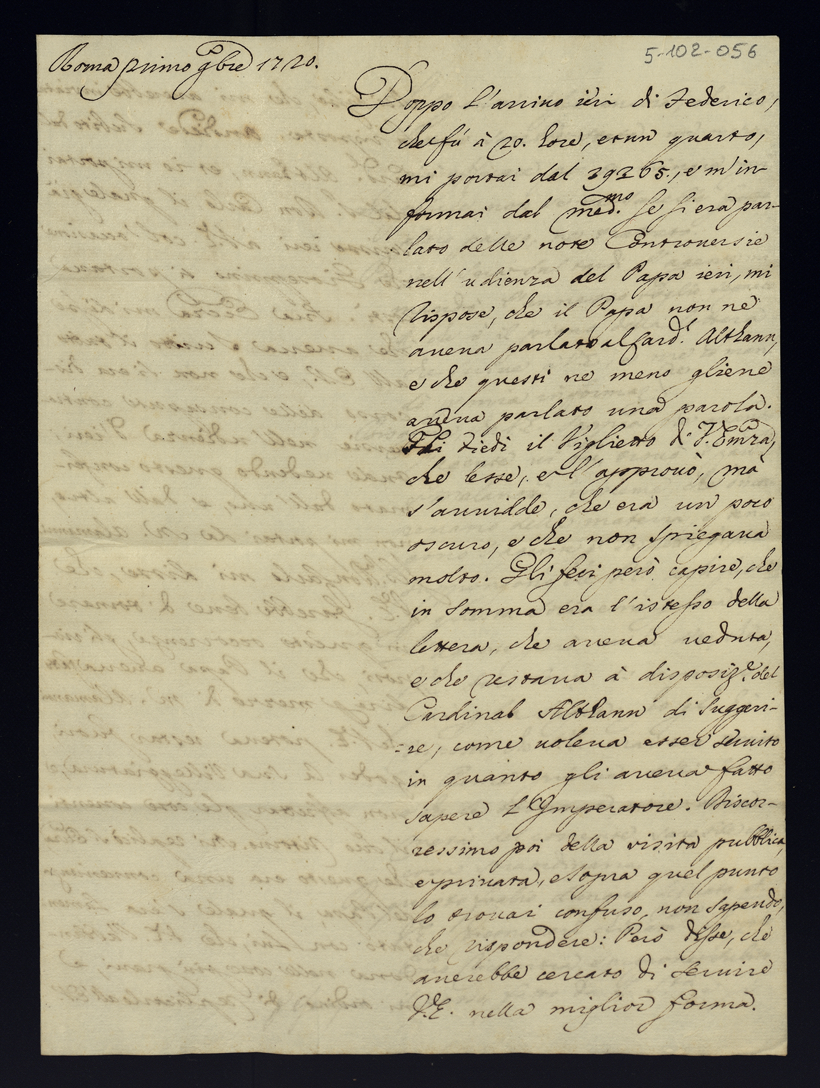 5-102-056
Roma primo 9bre 1720.
Doppo l'arrivo ieri di Federico,
che fù à 20. hore, et un quarto,
mi portai dal 29265., e m'in-
formai dal med.mo se si era par-
lato delle note Controversie
nell'udienza del Papa ieri, mi
rispose, che il Papa non ne
aveva parlato al Card.l Althann,
e che questi ne meno gliene
aveva parlato una parola.
diedi il Viglietto di V. Emza,
che lesse, e l'approvò, mà
s'avvidde, che era un poco
oscuro, e che non spiegava
molto. Gli feci però capire, che
in somma era l'istesso della
lettera, che aveva veduta,
e che restava à disposiz.e del
Cardinal Althann di suggeri-
re, come voleva esser servito
in quanto gli aveva fatto
sapere l'Imperatore. Discor-
ressimo poi della visita pubblica,
e privata, e sopra quel punto
lo trovai confuso, non sapendo,
che rispondere: Però disse, che
averebbe cercato di servire
V.E. nella miglior forma.